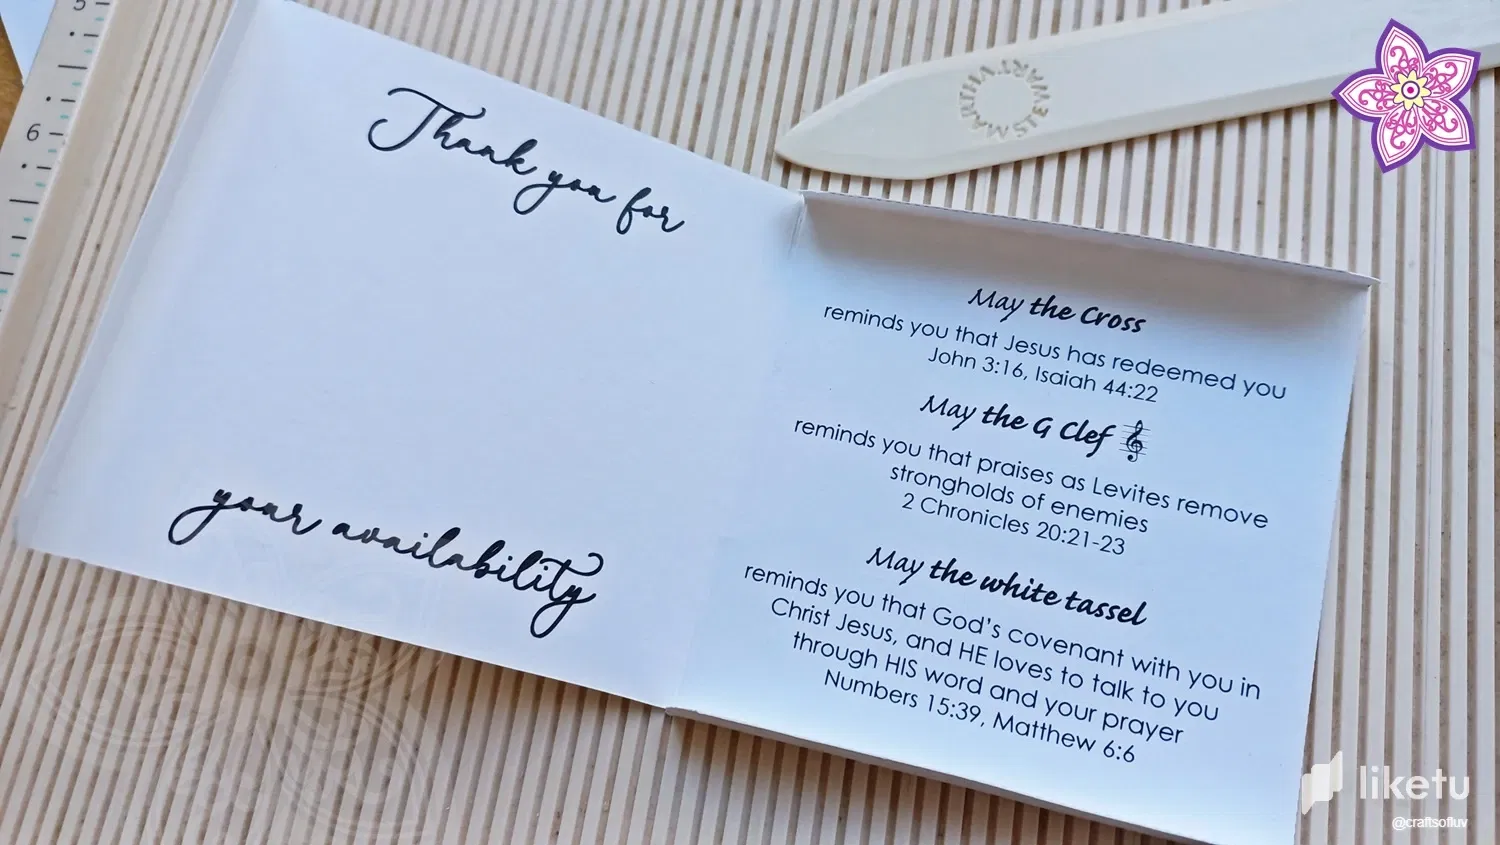 5
6
MARTHA STEWART
Thank you for
your availability
May the Cross
reminds you that Jesus has redeemed you
John 3:16, Isaiah 44:22
May the G Clef
reminds you that praises as Levites remove
strongholds of enemies
2 Chronicles 20:21-23
May the white tassel
reminds you that God's covenant with you in
Christ Jesus, and HE loves to talk to you
through HIS word and your prayer
Numbers 15:39, Matthew 6:6
liketu
@craftsofluv